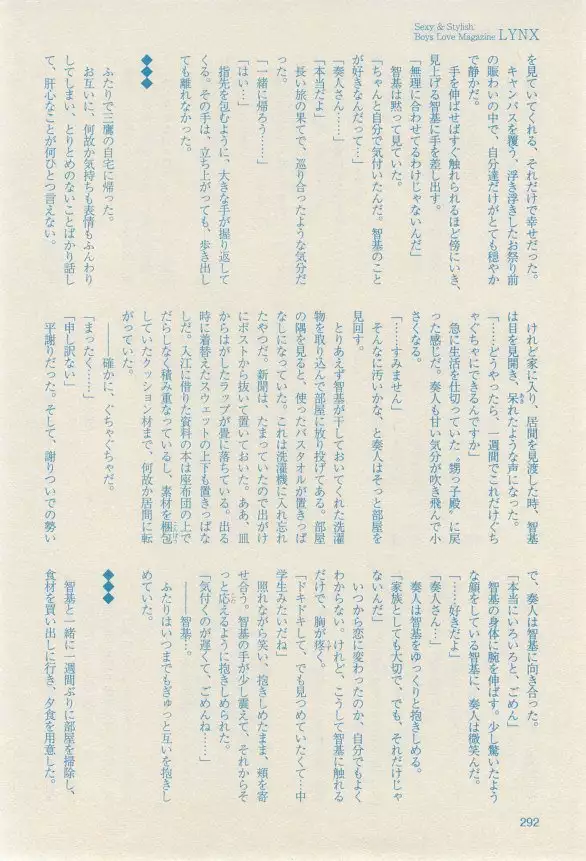 Sexy & Stylish
Boys Love Magazine LYNX
を見ていてくれる、それだけで幸せだった。
キャンパスを覆う、浮き浮きしたお祭り前
の賑わいの中で、自分達だけがとても穏やか
で静かだ。
手を伸ばせばすぐ触れられるほど傍にいき、
見上げる智基に手を差し出す。
「無理に合わせてるわけじゃないんだ」
智基は黙って見ていた。
「ちゃんと自分で気付いたんだ。智基のこと
が好きなんだって…」
「奏人さん……」
「本当だよ」
長い旅の果てで、巡り合ったような気分だ
った。
「一緒に帰ろう……」
「はい…」
指先を包むように、大きな手が握り返して
くる。その手は、立ち上がっても、歩き出し
ても離れなかった。
◆◆◆
ふたりで三鷹の自宅に帰った。
お互いに、何故か気持ちも表情もふんわり
してしまい、とりとめのないことばかり話し
て、肝心なことが何ひとつ言えない。
けれど家に入り、居間を見渡した時、智基
は目を見開き、呆れたような声になった。
「……どうやったら、一週間でこれだけぐち
ゃぐちゃにできるんですか」
急に生活を仕切っていた〝甥っ子殿〟に戻
った感じだ。奏人も甘い気分が吹き飛んで小
さくなる。
「……すみません」
そんなに汚いかな、と奏人はそっと部屋を
見回す。
とりあえず智基が干しておいてくれた洗濯
物を取り込んで部屋に放り投げてある。部屋
の隅を見ると、使ったバスタオルが置きっぱ
なしになっていた。これは洗濯機に入れ忘れ
たやつだ。新聞は、たまっていたので出がけ
にポストから抜いて置いておいた。ああ、皿
からはがしたラップが畳に落ちている。出る
時に着替えたスウェットの上下も置きっぱな
しだ。入江に借りた資料の本は座布団の上で
だらしなく積み重なっているし、素材を梱包
していたクッション材まで、何故か居間に転
がっていた。
――確かに、ぐちゃぐちゃだ。
「まったく……」
「申し訳ない」
平謝りだった。そして、謝りついでの勢い
で、奏人は智基に向き合った。
「本当にいろいろと、ごめん」
智基の身体に腕を伸ばす。少し驚いたよう
な顔をしている智基に、奏人は微笑んだ。
「……好きだよ」
「奏人さん…」
奏人は智基をゆっくりと抱きしめる。
「家族としても大切で、でも、それだけじゃ
ないんだ」
いつから恋に変わったのか、自分でもよく
わからない。けれど、こうして智基に触れる
だけで、胸が疼く。
「ドキドキして、でも見つめていたくて…中
学生みたいだね」
照れながら笑い、抱きしめたまま、頬を寄
せ合う。智基の手が少し震えて、それからそ
っと応えるように抱きしめられた。
「気付くのが遅くて、ごめんね……」
――智基…。
ふたりはいつまでもぎゅっと互いを抱きし
めていた。
◆◆◆
智基と一緒に一週間ぶりに部屋を掃除し、
食材を買い出しに行き、夕食を用意した。
292